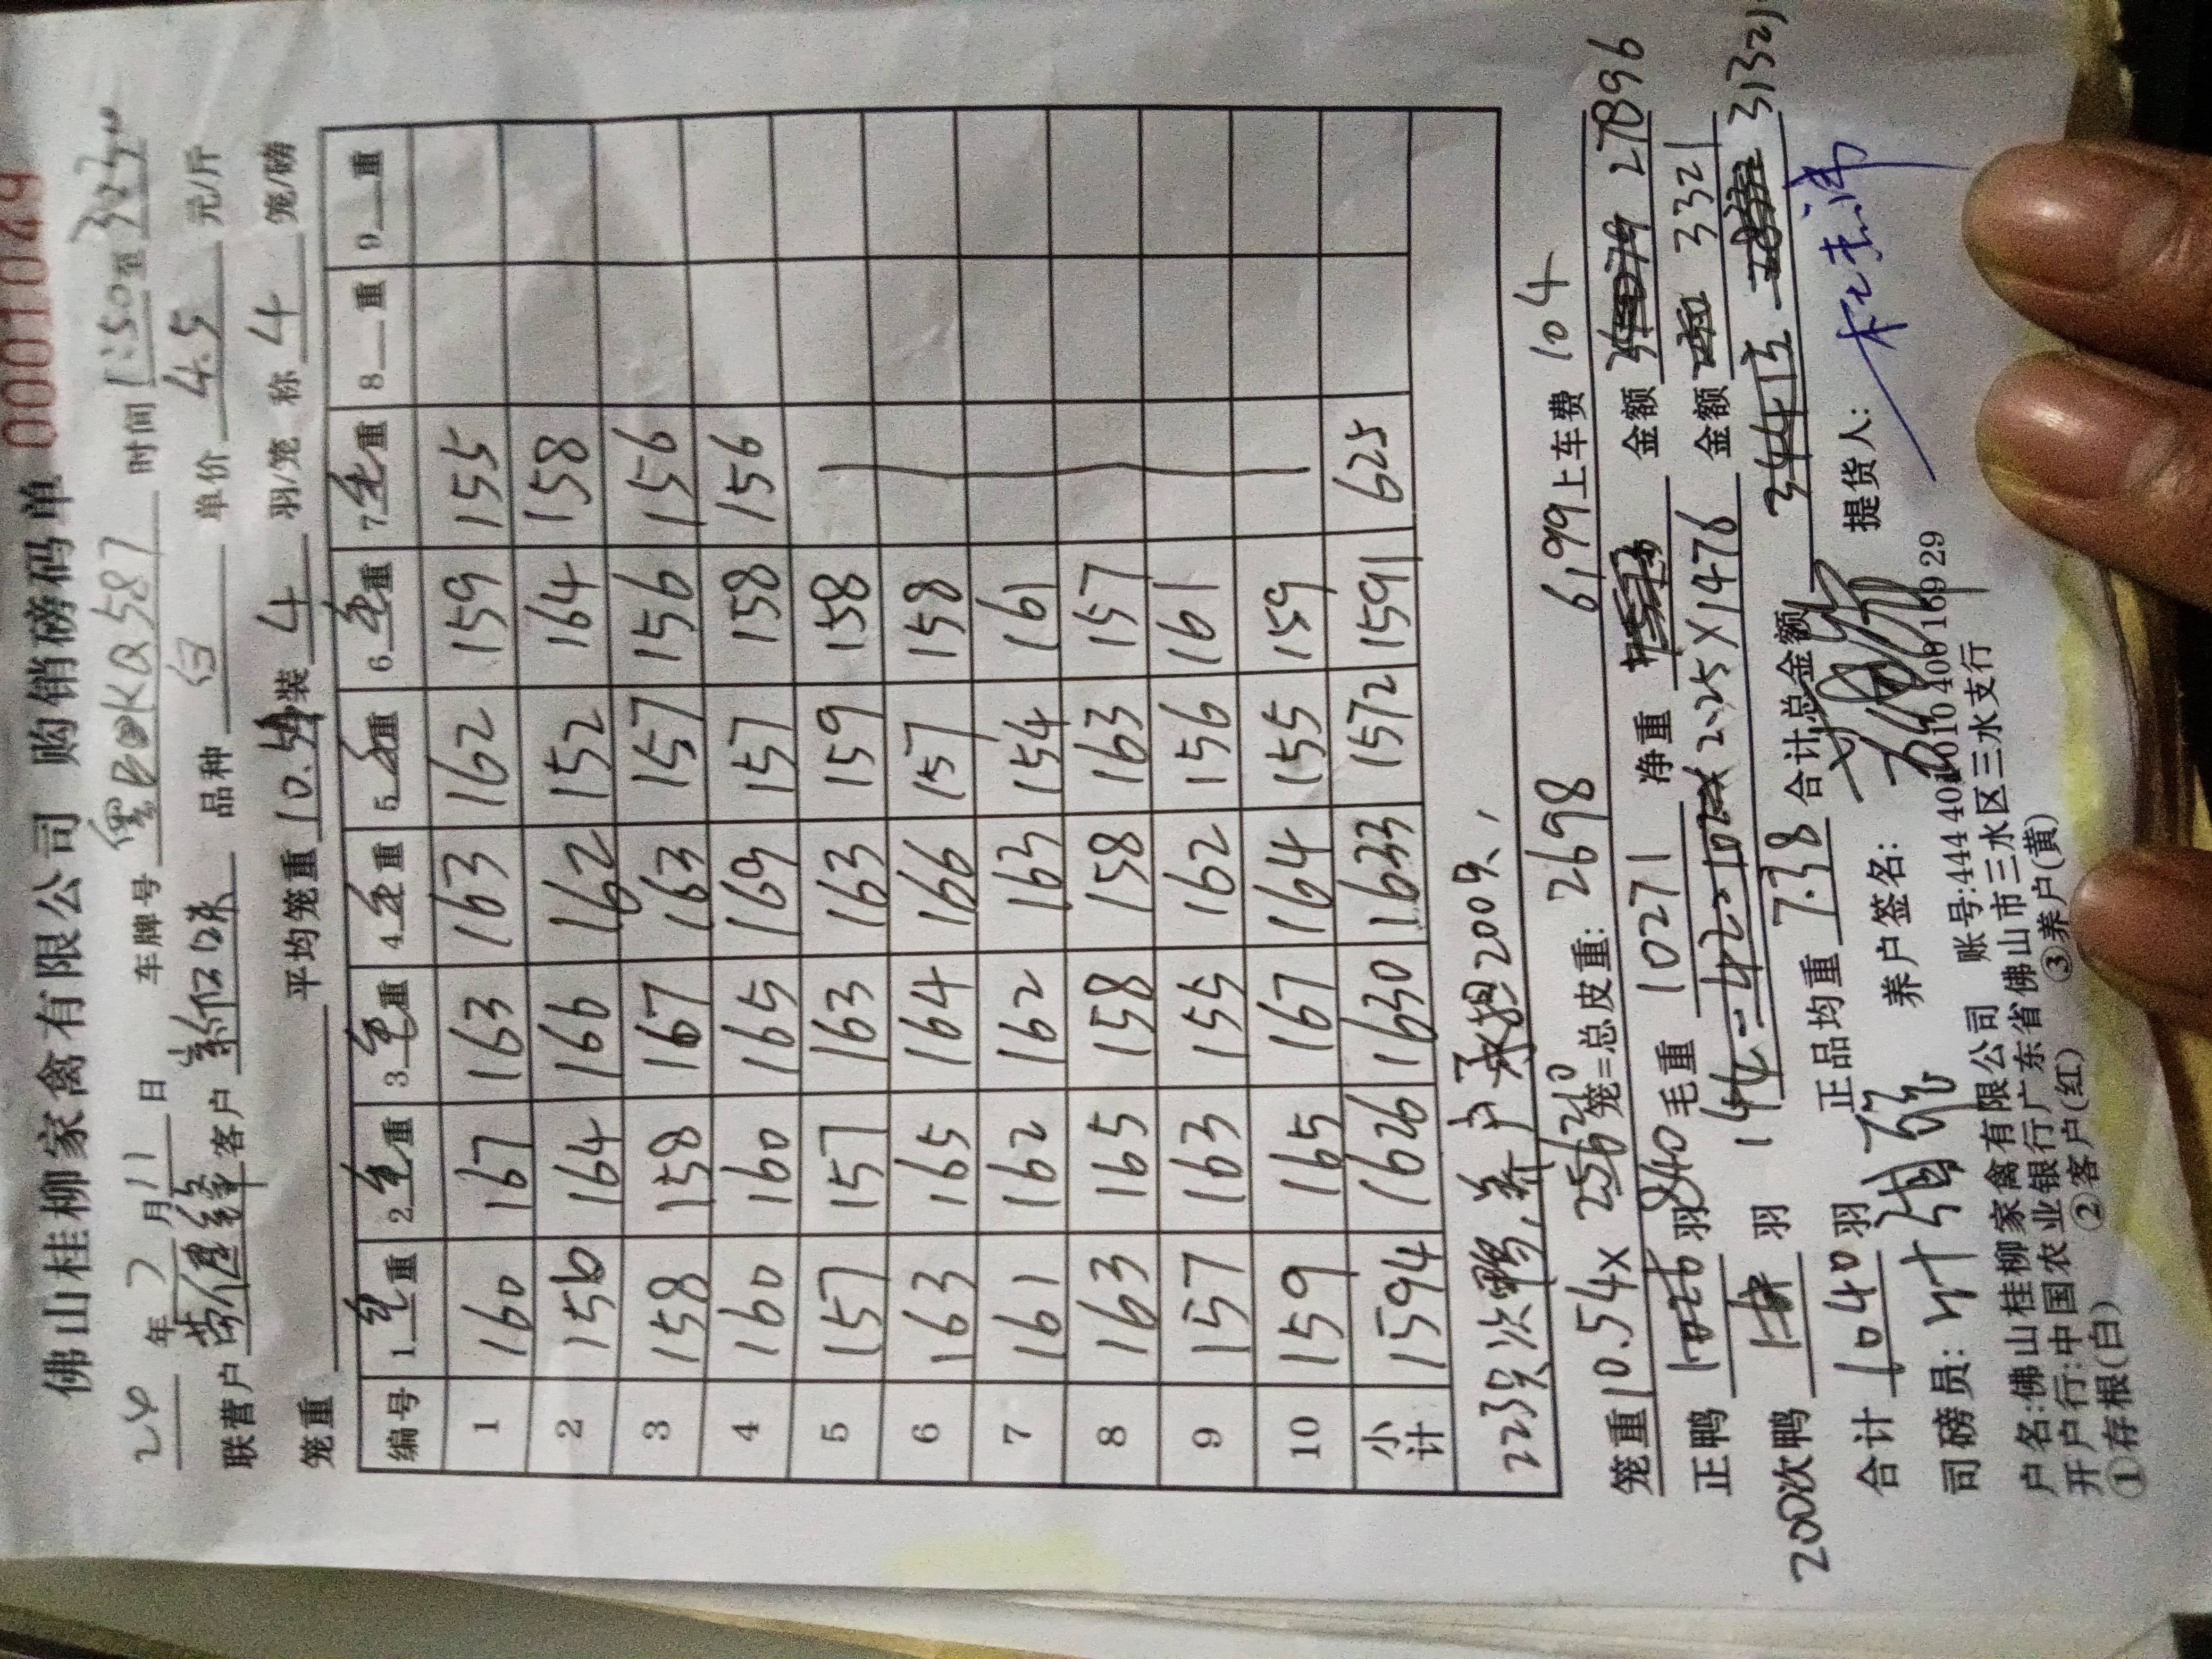 佛山桂柳家禽有限公司 购销磅码单 00011049
24年7月11日 车牌号 KQ587 时间 1:50
联营户 客户 新口味 品种 白 单价 4.5 元/斤
笼重 平均笼重 10.54 装 4 羽/笼 称 4 笼/磅
编号 1毛重 2毛重 3毛重 4毛重 5毛重 6毛重 7毛重 8重 9重
1 160 167 163 163 162 159 155
2 156 164 166 162 152 164 158
3 158 158 167 163 157 156 156
4 160 160 165 169 157 158 156
5 157 157 163 163 159 158
6 163 165 164 166 157 158
7 161 162 162 163 154 161
8 163 165 158 158 163 157
9 157 163 155 162 156 161
10 159 165 167 164 155 159
小计 1594 1626 1630 1633 1572 1591 625
223只次鸭,养户承担200只,
笼重 10.54x 256 笼=总皮重: 2698 6199 上车费 104
正鸭 840 羽 毛重 10271 净重 金额 27896
200次鸭 羽 2.25X1476 金额 3321
合计 1040 羽 正品均重 7.38 合计总金额 31321
司磅员: 养户签名: 提货人:
户名:佛山桂柳家禽有限公司 账号:444 401 010 400 169 29
开户行:中国农业银行广东省佛山市三水区三水支行
①存根(白) ②客户(红) ③养户(黄)